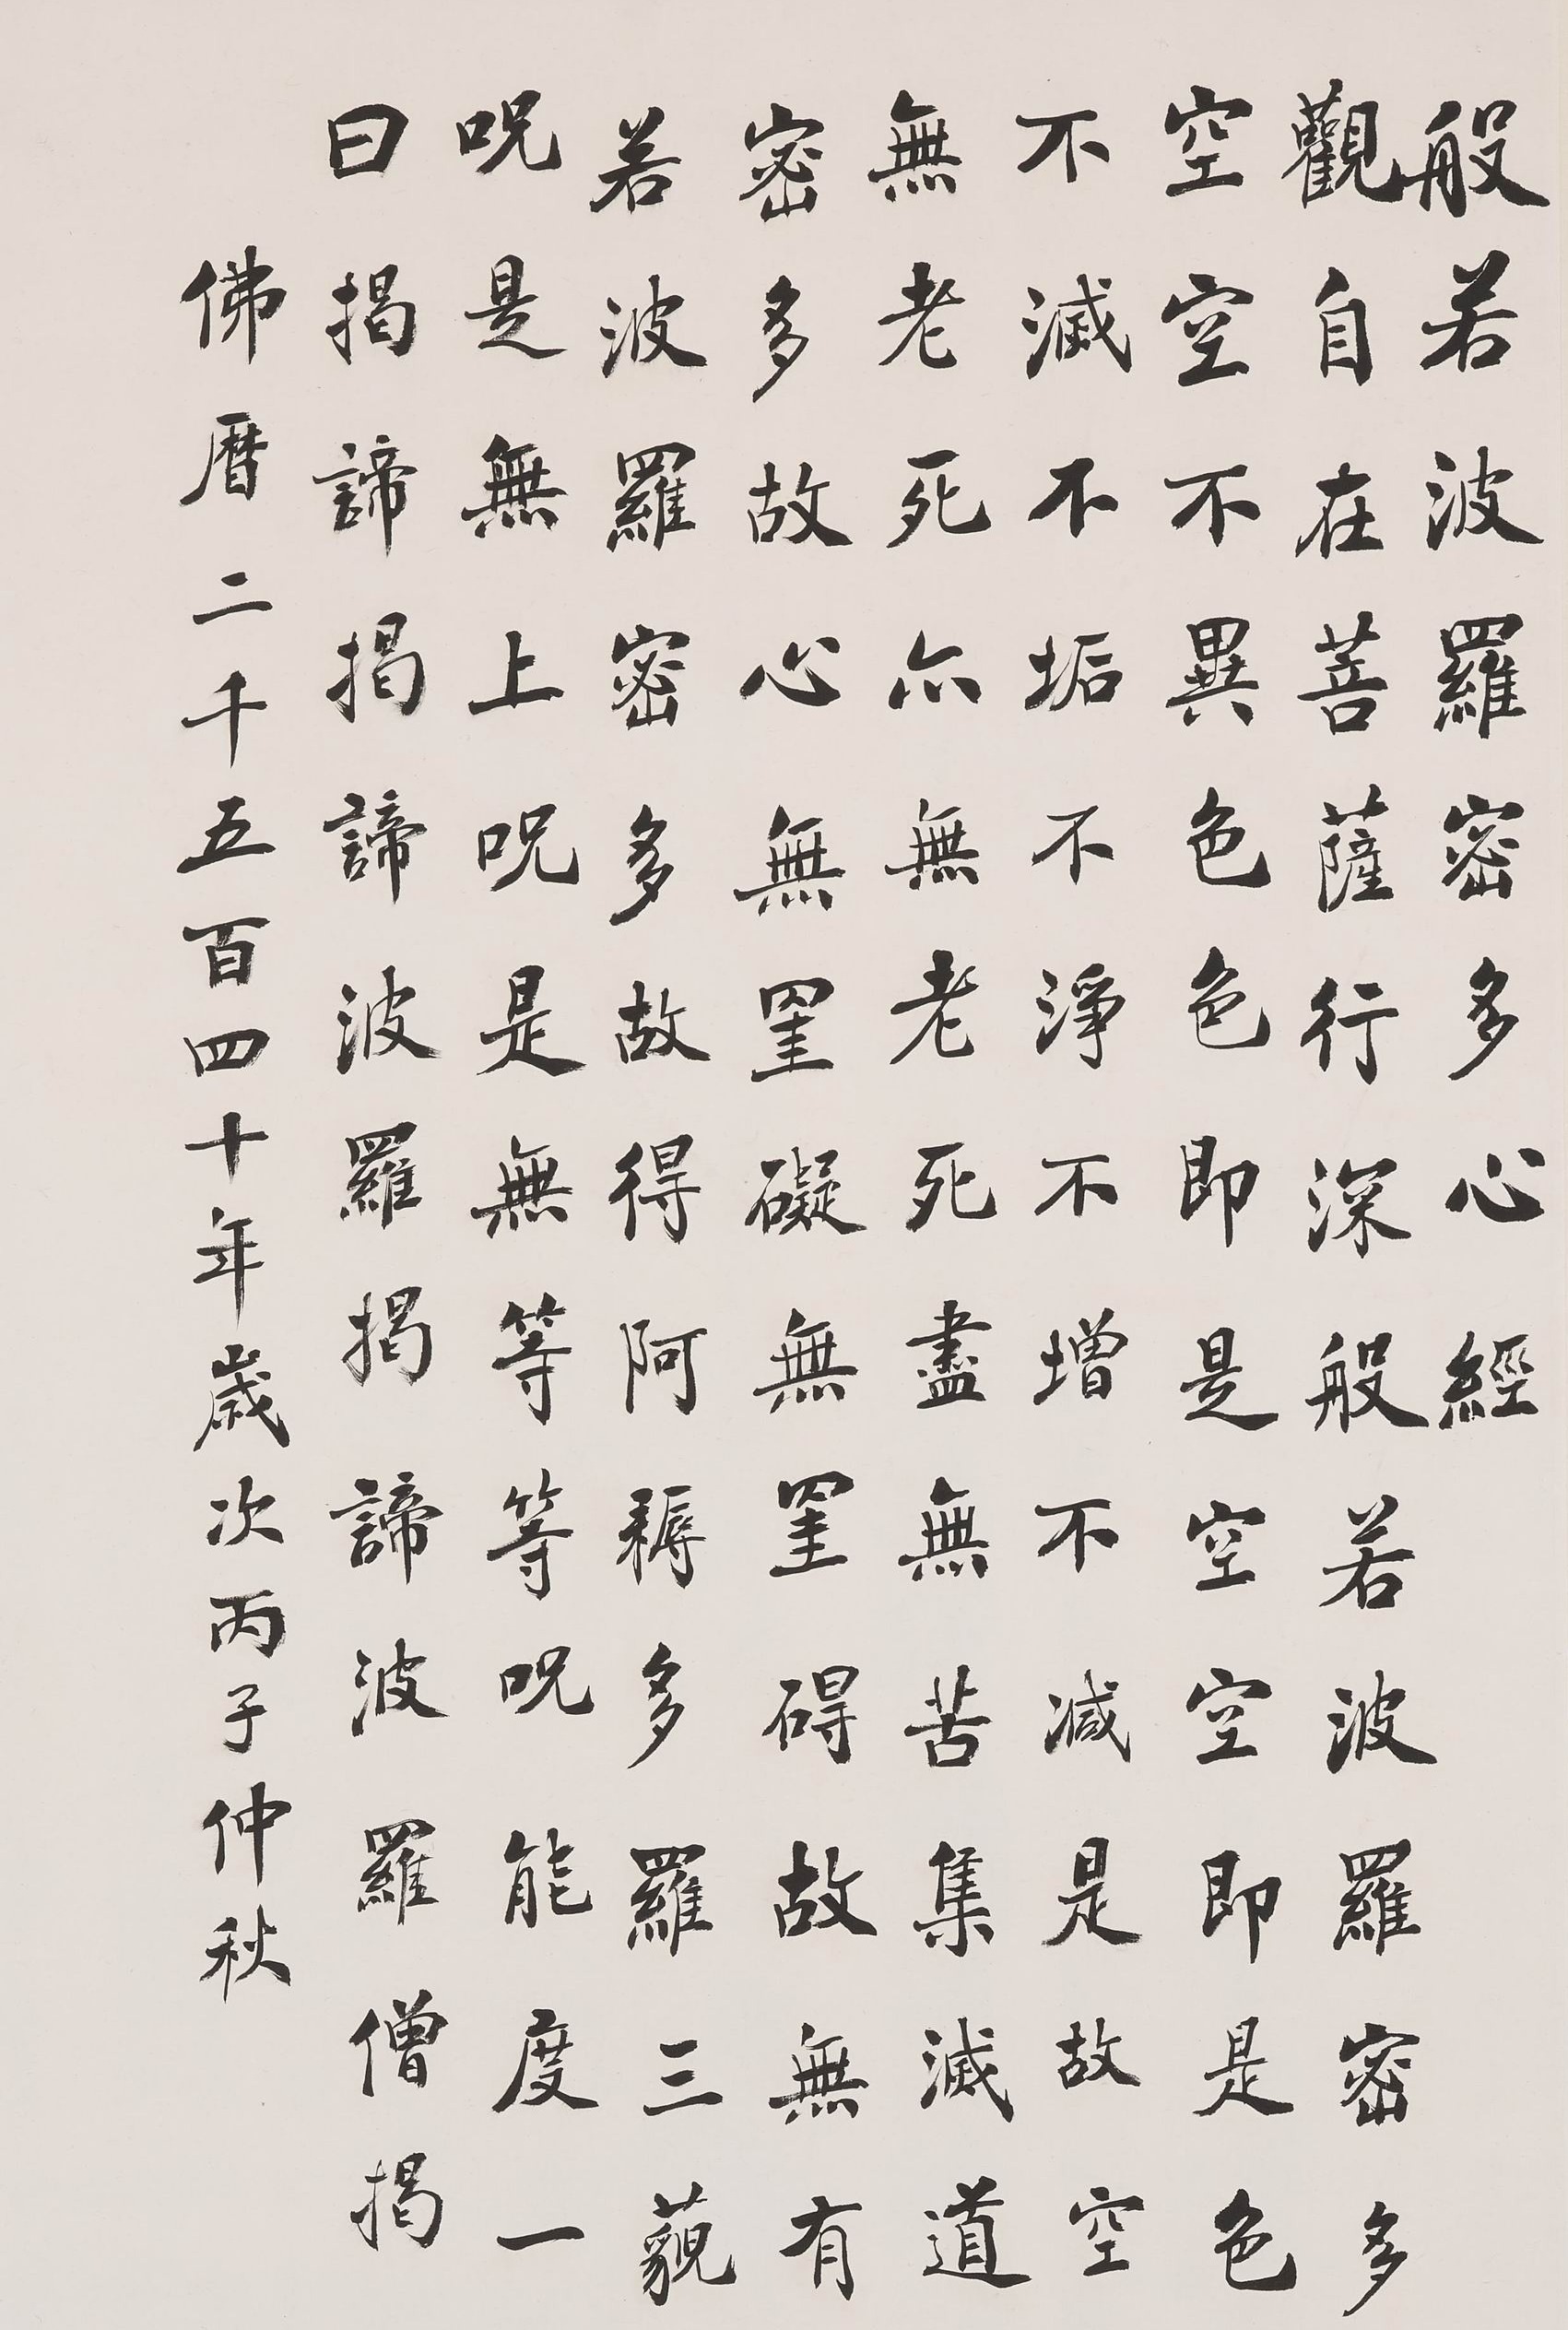 般若波羅密多心經
觀自在菩薩行深般若波羅密多
空空不異色色即是空空即是色
不滅不垢不淨不增不減是故空
無老死亦無老死盡無苦集滅道
密多故心無罣礙無罣碍故無有
若波羅密多故得阿耨多羅三藐
呪是無上呪是無等等呪能度一
曰揭諦揭諦波羅揭諦波羅僧揭
佛曆二千五百四十年歲次丙子仲秋